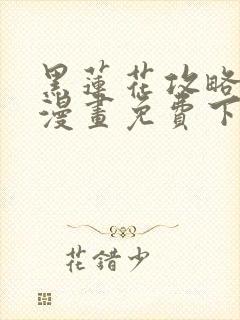 黑蓮花攻略
漫畫免費下
花錯少